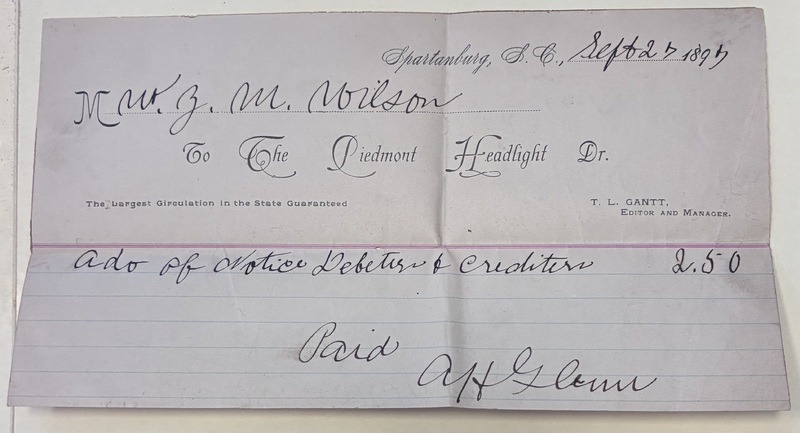 Spartanburg, S. C., Sept 27 1897
M W. Z. M. Wilson
To The Piedmont Headlight Dr.
The Largest Circulation in the State Guaranteed
T. L. GANTT,
EDITOR AND MANAGER.
Adv of Notice Debeters & Crediters 2.50
Paid
AH Glenn